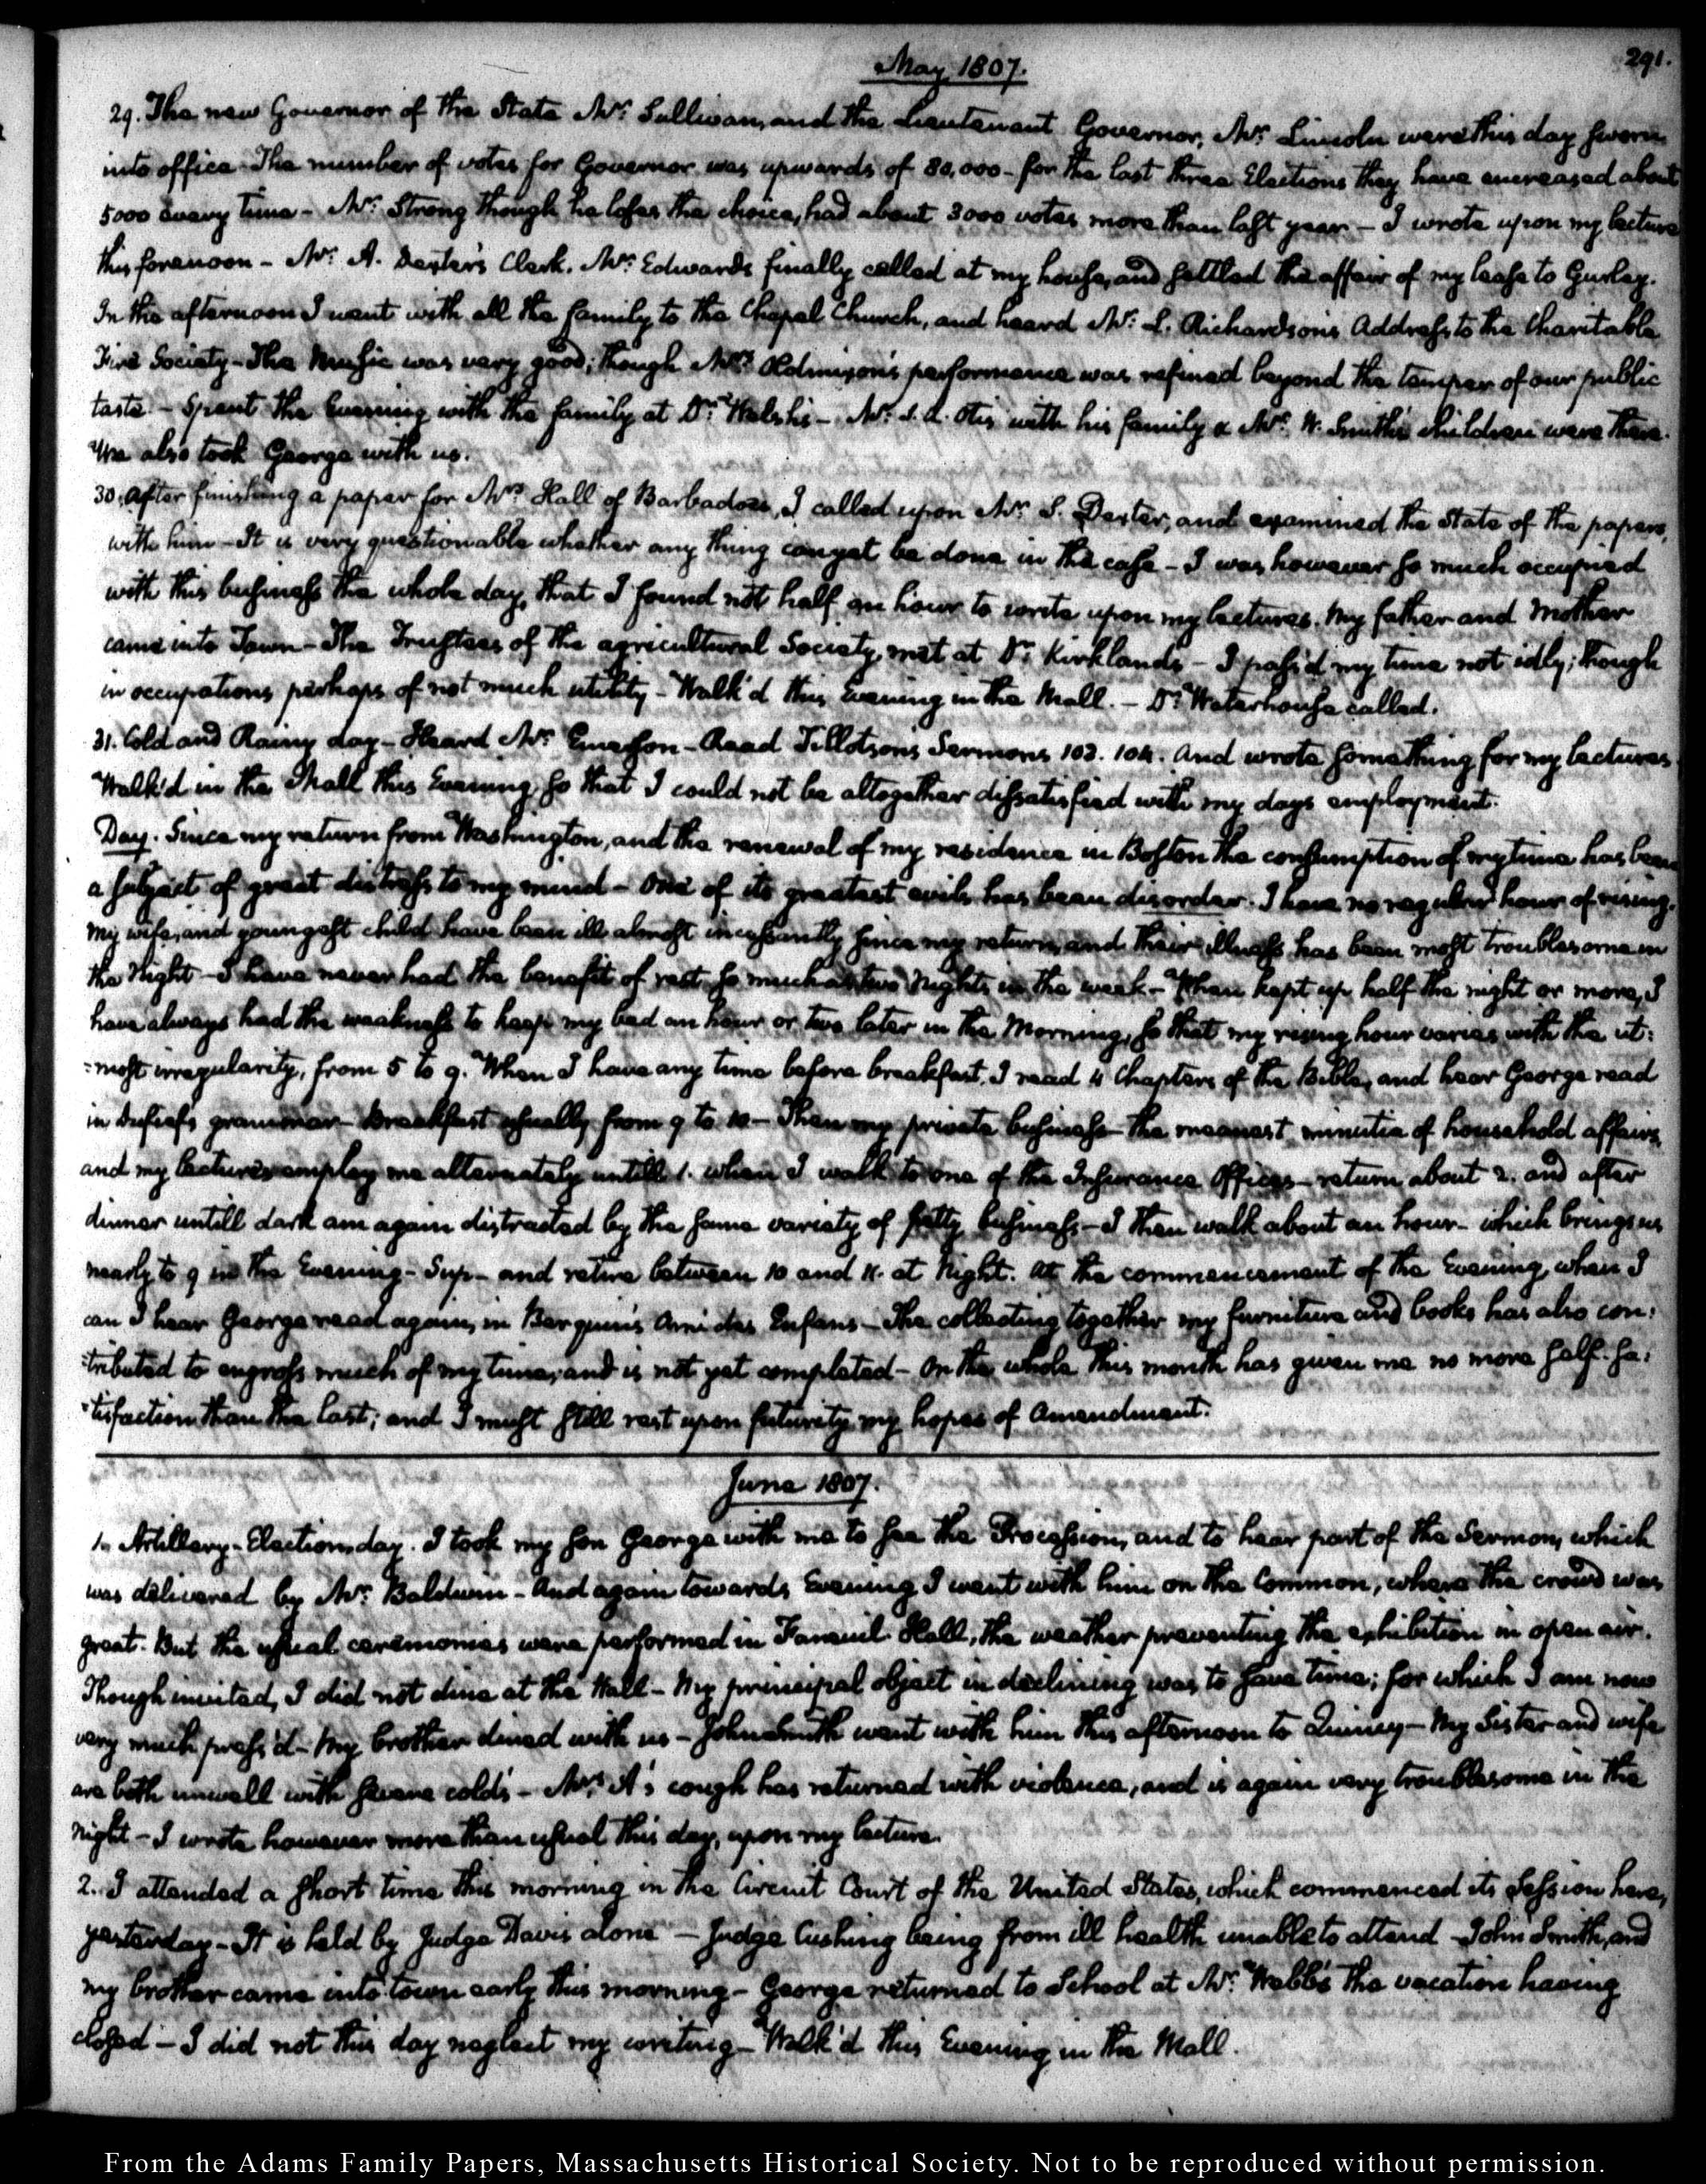 May 1807.
291.
29. The new Governor of the State Mr. Sullivan, and the Lieutenant Governor, Mr. Lincoln were this day sworn
into office. The number of votes for Governor was upwards of 80,000 - for the last three Elections they have encreased about
5000 every time - Mr. Strong though he loses the choice, had about 3000 votes more than last year - I wrote upon my lecture
this forenoon - Mr. A. Dexter's Clerk. Mr. Edwards finally called at my house, and settled the affair of my lease to Gurley.
In the afternoon I went with all the family to the Chapel Church, and heard Mr. L. Richardson's Address to the Charitable
Fire Society - The Music was very good; though Mrs. Oldmixon's performance was refined beyond the temper of our public
taste - Spent the Evening with the family at Dr. Welsh's - Mr. S. A. Otis with his family & Mr. W. Smith's children were there.
We also took George with us.
30. After finishing a paper for Mrs. Hall of Barbadoes, I called upon Mr. S. Dexter, and examined the state of the papers,
with him - It is very questionable whether any thing can yet be done in the case - I was however so much occupied
with this business the whole day, that I found not half an hour to write upon my lectures. My father and Mother
came into Town - The Trustees of the agricultural Society, met at Dr. Kirkland's - I pass'd my time not idly; though
in occupations perhaps of not much utility - Walk'd this Evening in the Mall. - Dr. Waterhouse called.
31. Cold and Rainy day - Heard Mr. Emerson - Read Tillotson's Sermons 103. 104. And wrote something for my lectures
Walk'd in the Mall this Evening so that I could not be altogether dissatisfied with my days employment.
Day. Since my return from Washington, and the renewal of my residence in Boston the consumption of my time has been
a subject of great distress to my mind - One of its greatest evils has been disorder. I have no regular hour of rising.
My wife, and youngest child have been ill almost incessantly since my return, and their illness has been most troublesome in
the Night - I have never had the benefit of rest so much as two Nights in the week - When kept up half the night or more, I
have always had the weakness to keep my bed an hour or two later in the Morning, so that my rising hour varies with the ut:
:most irregularity, from 5 to 9. When I have any time before breakfast, I read 4 Chapters of the Bible, and hear George read
in Dufief's grammar - Breakfast usually from 9 to 10 - Then my private business - the meanest minutia of household affairs,
and my lectures employ me alternately untill 1. when I walk to one of the Insurance Offices - return about 2. and after
dinner untill dark am again distracted by the same variety of petty business - I then walk about an hour - which brings us
nearly to 9 in the Evening - Sup - and retire between 10 and 11. at Night. At the commencement of the Evening when I
can I hear George read again, in Berquin's Ami des Enfans - The collecting together my furniture and books has also con:
:tributed to engross much of my time; and is not yet completed - On the whole this month has given me no more self-sa:
:tisfaction than the last; and I must still rest upon futurity my hopes of Amendment.
June 1807.
1. Artillery-Election day. I took my son George with me to see the Procession, and to hear part of the Sermon, which
was delivered by Mr. Baldwin - And again towards Evening I went with him on the Common, where the crowd was
great. But the usual ceremonies were performed in Faneuil Hall, the weather preventing the exhibition in open air.
Though invited, I did not dine at the Hall - My principal object in declining was to save time; for which I am now
very much press'd - My brother dined with us - John Smith went with him this afternoon to Quincy - My Sister and wife
are both unwell with severe colds - Mrs. A's cough has returned with violence, and is again very troublesome in the
Night - I wrote however more than usual this day, upon my lecture.
2. I attended a short time this morning in the Circuit Court of the United States, which commenced its Session here,
yesterday - It is held by Judge Davis alone - Judge Cushing being from ill health unable to attend - John Smith, and
my brother came into town early this morning - George returned to School at Mr. Webb's the vacation having
closed - I did not this day neglect my writing - Walk'd this Evening in the Mall.
From the Adams Family Papers, Massachusetts Historical Society. Not to be reproduced without permission.